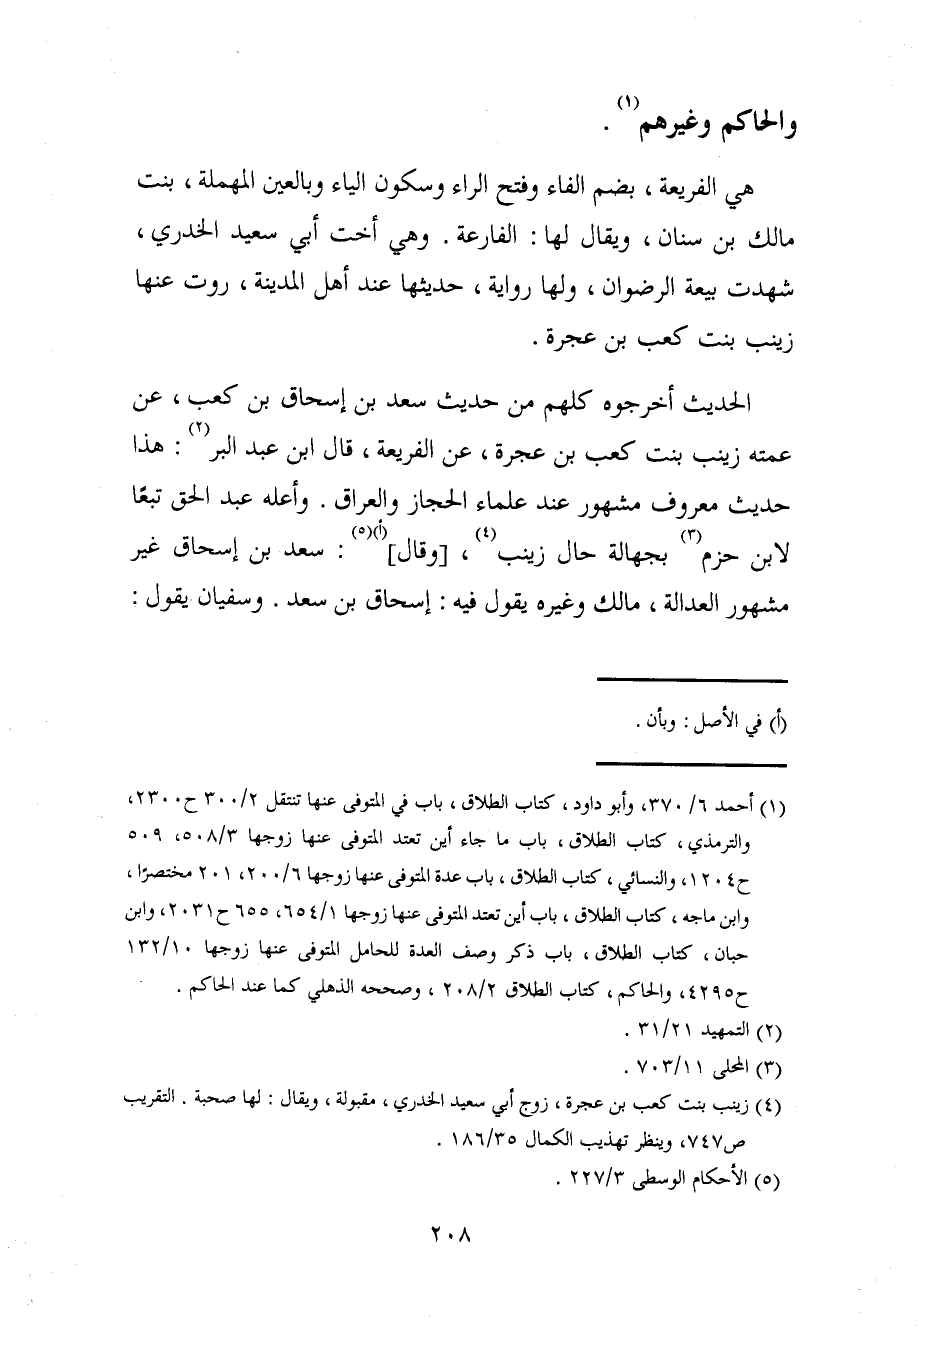 والحاكم وغيرهم(١) .
هي الفريعة ، بضم الفاء وفتح الراء وسكون الياء وبالعين المهملة ، بنت
مالك بن سنان ، ويقال لها : الفارعة . وهي أخت أبي سعيد الخدري ،
شهدت بيعة الرضوان ، ولها رواية ، حديثها عند أهل المدينة ، روت عنها
زينب بنت كعب بن عجرة .
الحديث أخرجوه كلهم من حديث سعد بن إسحاق بن كعب ، عن
عمته زينب بنت كعب بن عجرة ، عن الفريعة ، قال ابن عبد البر(٢) : هذا
حديث معروف مشهور عند علماء الحجاز والعراق . وأعله عبد الحق تبعًا
لابن حزم(٣) بجهالة حال زينب(٤) ، [وقال](أ)(٥) : سعد بن إسحاق غير
مشهور العدالة ، مالك وغيره يقول فيه : إسحاق بن سعد . وسفيان يقول :
(أ) في الأصل : وبأن .
(١) أحمد ٦/ ٣٧٠، وأبو داود ، كتاب الطلاق ، باب في المتوفى عنها تنتقل ٣٠٠/٢ ح٢٣٠٠،
والترمذي ، كتاب الطلاق ، باب ما جاء أين تعتد المتوفى عنها زوجها ٥٠٨/٣، ٥٠٩
ح١٢٠٤، والنسائي ، كتاب الطلاق ، باب عدة المتوفى عنها زوجها ٢٠٠/٦، ٢٠١ مختصرًا ،
وابن ماجه ، كتاب الطلاق ، باب أين تعتد المتوفى عنها زوجها ٦٥٤/١، ٦٥٥ ح٢٠٣١، وابن
حبان ، كتاب الطلاق ، باب ذكر وصف العدة للحامل المتوفى عنها زوجها ١٣٢/١٠
ح٤٢٩٥، والحاكم ، كتاب الطلاق ٢٠٨/٢ ، وصححه الذهلي كما عند الحاكم .
(٢) التمهيد ٣١/٢١ .
(٣) المحلى ٧٠٣/١١ .
(٤) زينب بنت كعب بن عجرة ، زوج أبي سعيد الخدري ، مقبولة ، ويقال : لها صحبة . التقريب
ص٧٤٧، وينظر تهذيب الكمال ١٨٦/٣٥ .
(٥) الأحكام الوسطى ٢٢٧/٣ .
٢٠٨